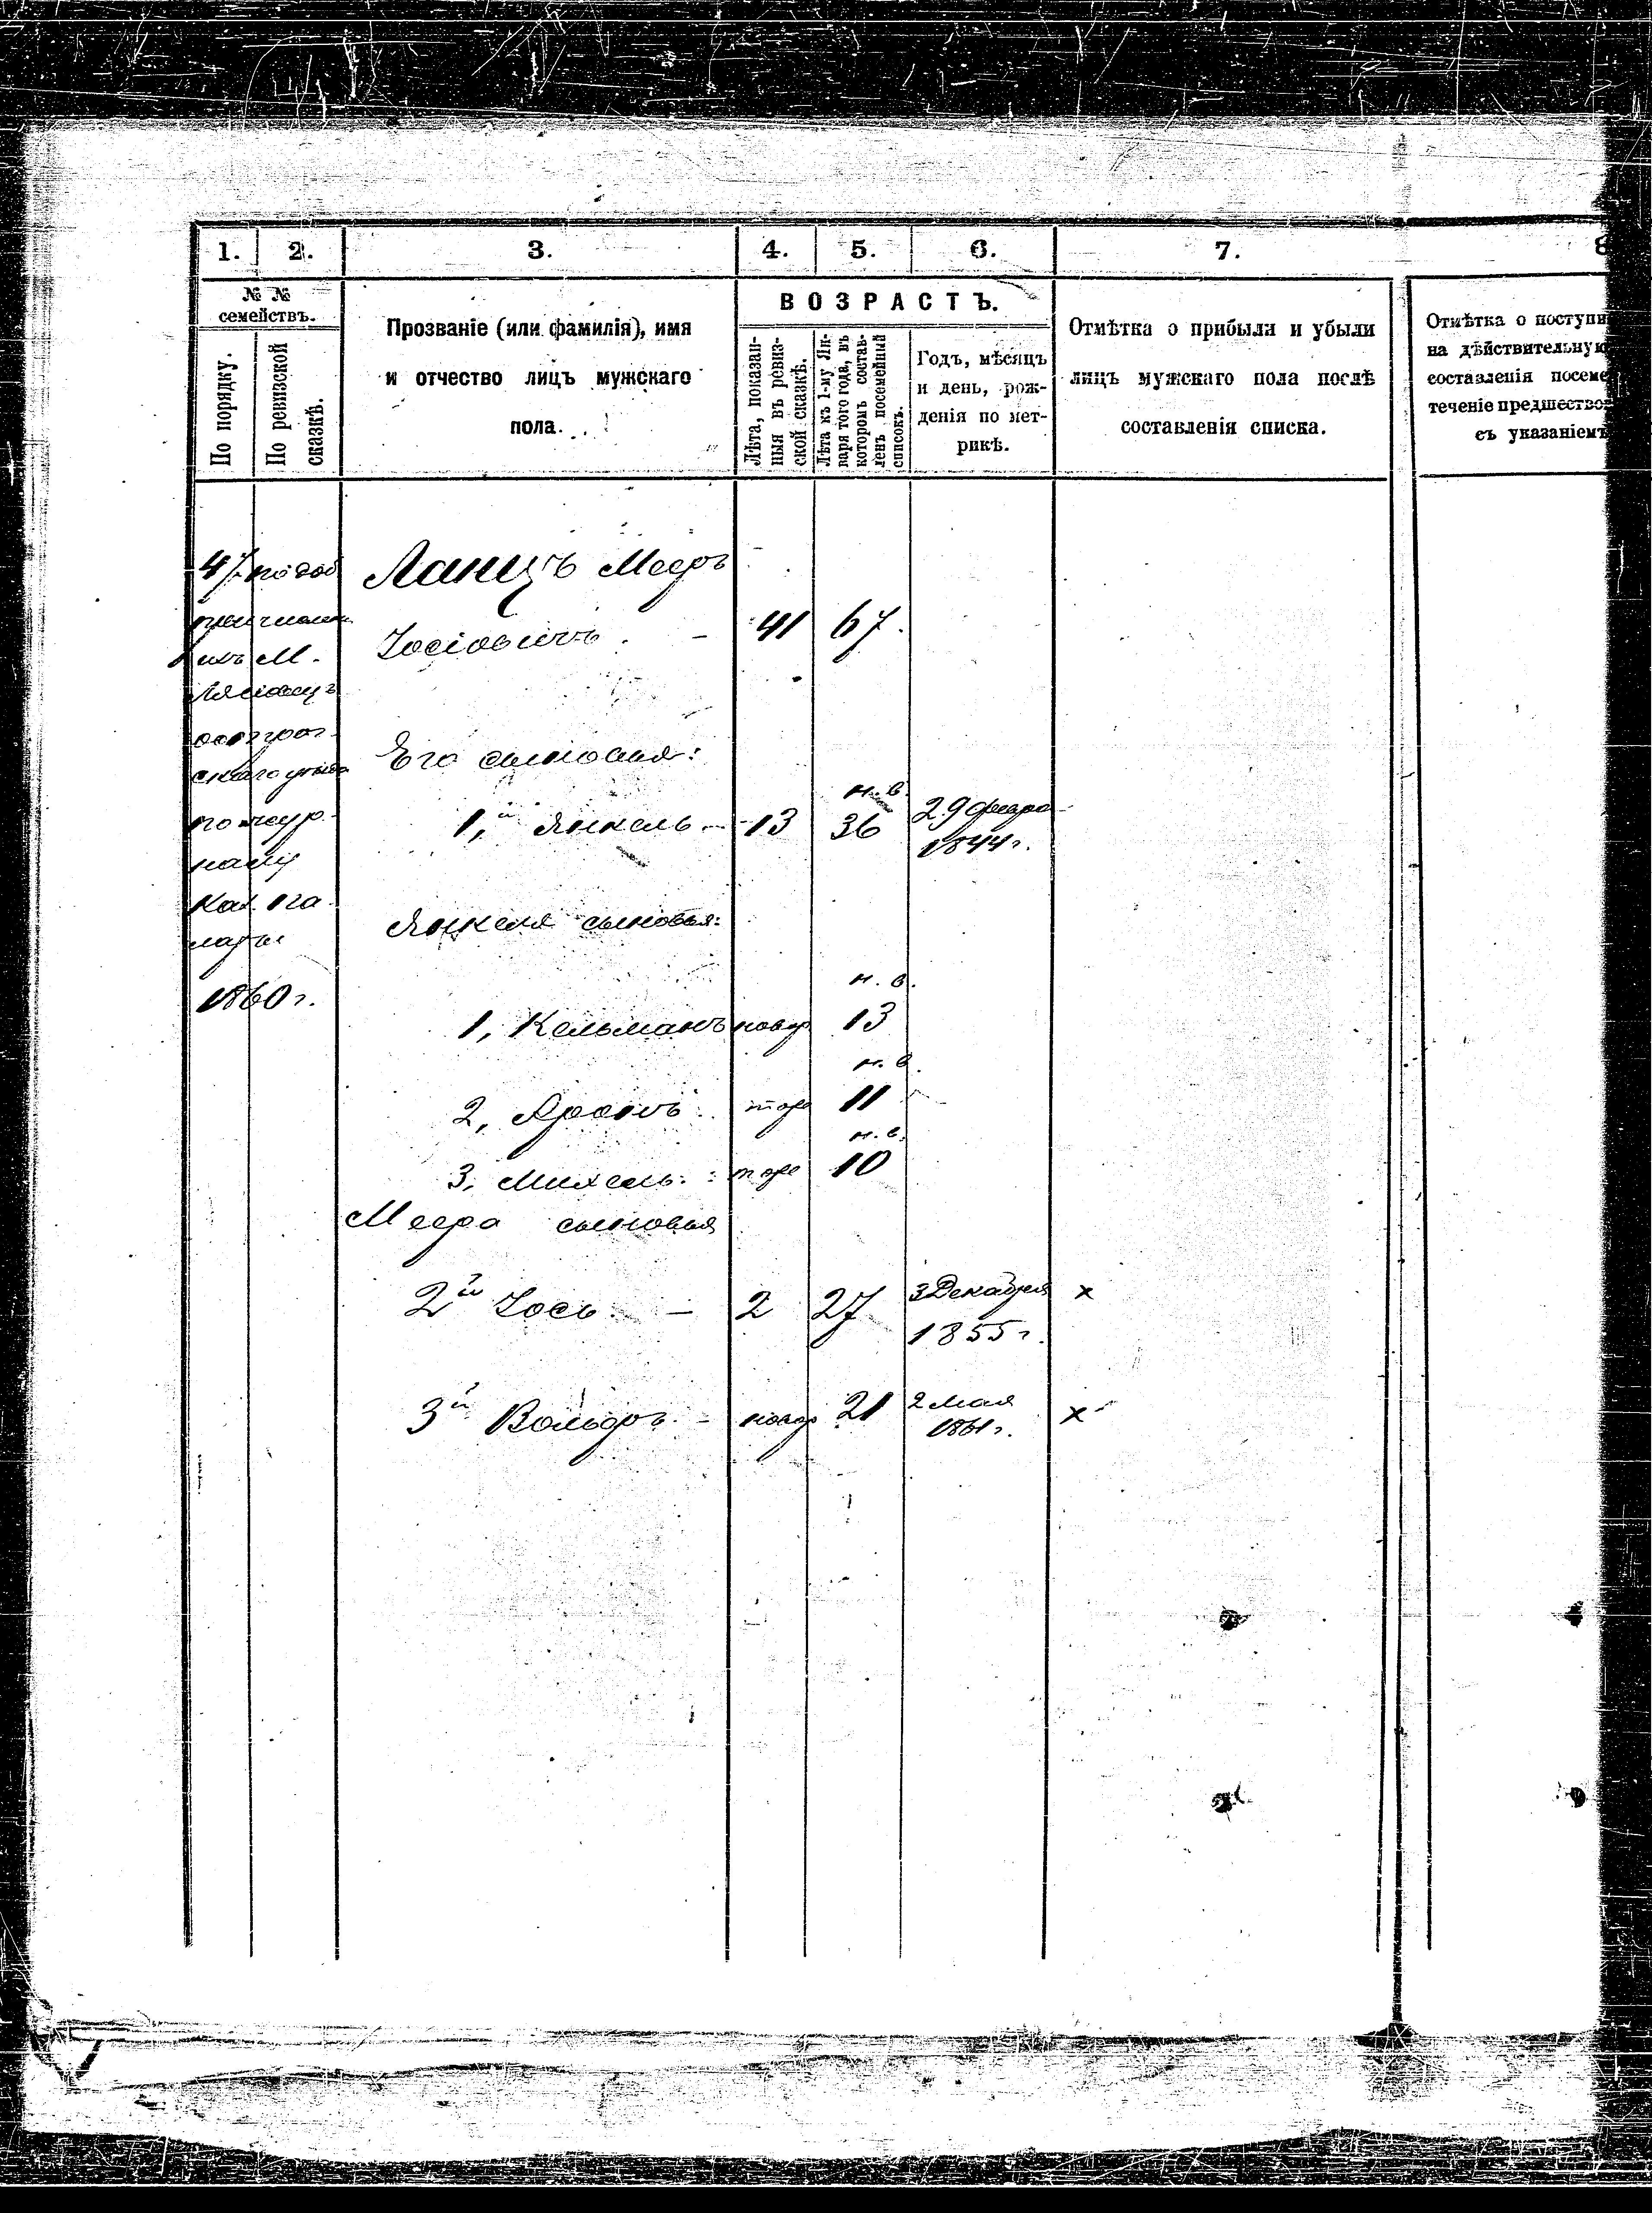 1. 2. 3. 4. 5. 6. 7. 8
№ №
семействъ.
По порядку.
По ревизской
сказкѣ.
Прозваніе (или фамилія), имя
и отчество лицъ мужскаго
пола.
ВОЗРАСТЪ.
Лѣта, показан-
ныя въ ревиз-
ской сказкѣ.
Лѣта къ 1-му Ян-
варя того года, въ
которомъ состав-
ленъ посемейный
списокъ.
Годъ, мѣсяцъ
и день, рож-
денія по мет-
рикѣ.
Отмѣтка о прибыли и убыли
лицъ мужскаго пола послѣ
составленія списка.
Отмѣтка о поступи
на дѣйствительную
составленія посеме
теченіе предшество
съ указаніемъ
47 Ланцъ Мееръ
Іосіовичъ. - 41 67.
М.
Его сыновья:
н. в.
1,й Янкель - 13 36 29 февра
1844 г.
по жур
налу
Каз. па
латы
1860 г.
Янкеля сыновья:
н. в.
1, Кельманъ новор 13
н. в.
2, Аронъ тоже 11
н. в.
3, Михель тоже 10
Меера сыновья
2й Іось - 2 27 3 Декабря x
1855 г.
3й Вольфъ - новор 21 2 мая x
1861 г.